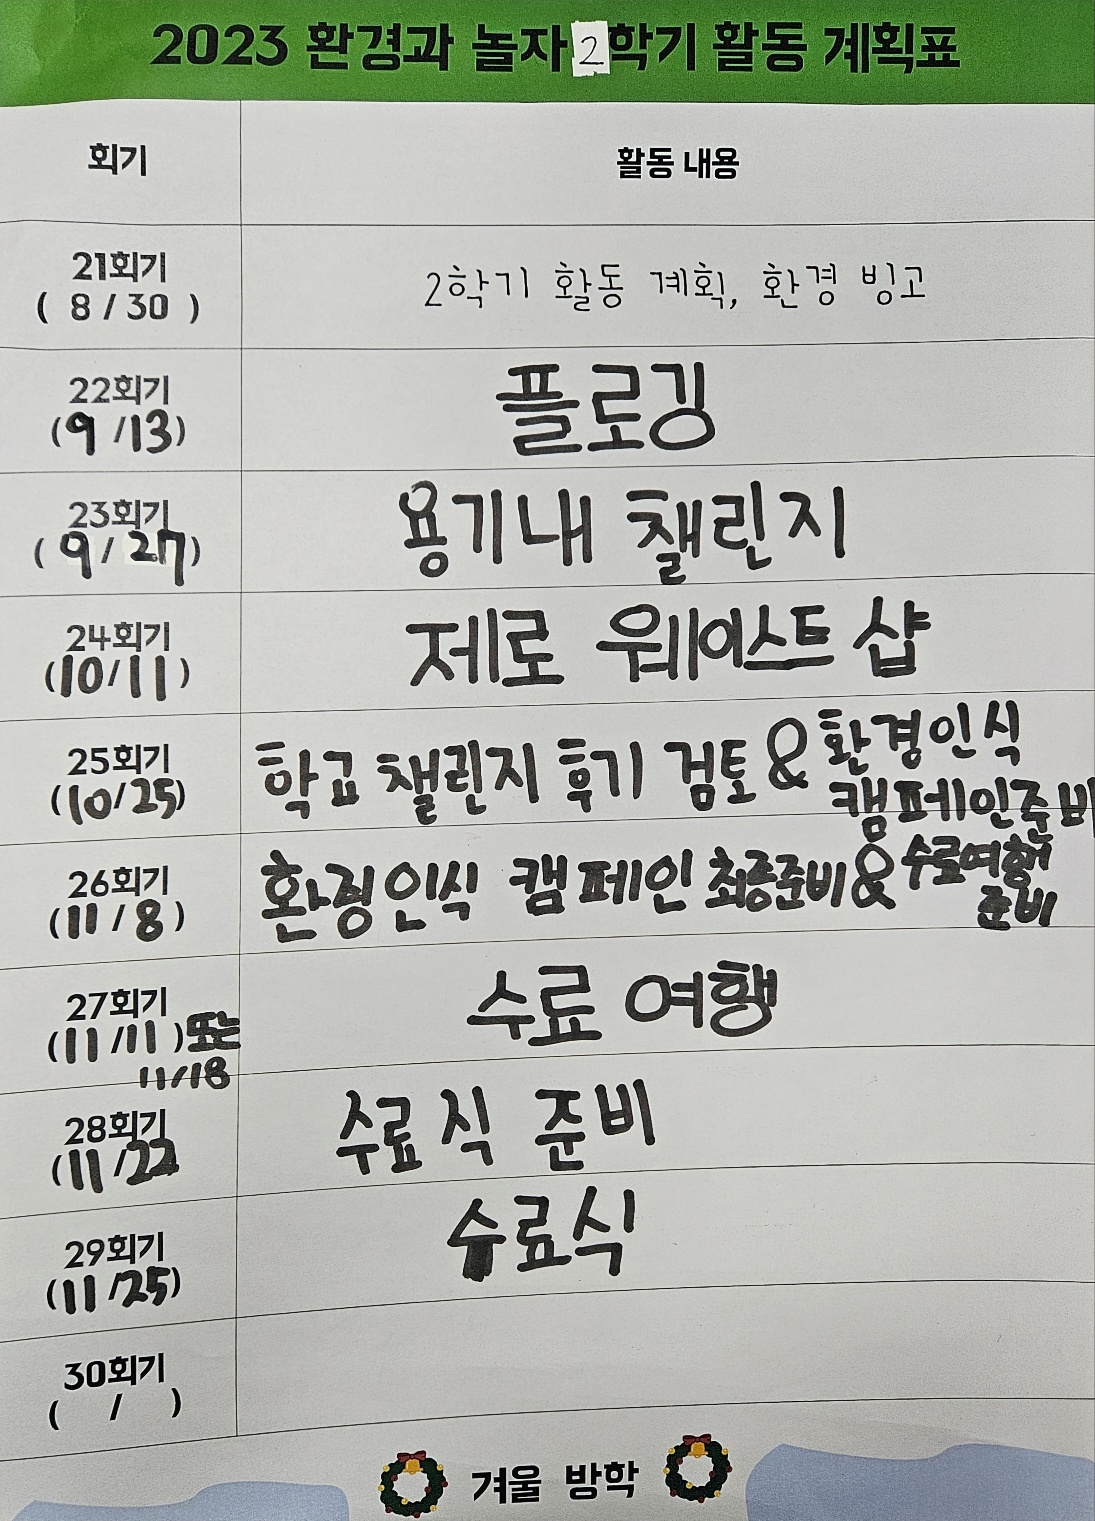 2023 환경과 놀자 2학기 활동 계획표
회기
활동 내용
21회기
( 8 / 30 )
2학기 활동 계획, 환경 빙고
22회기
(9 /13)
플로깅
23회기
( 9 / 27)
용기내 챌린지
24회기
(10/11)
제로 웨이스트 샵
25회기
(10/25)
학교 챌린지 후기 검토 & 환경인식
캠페인준비
26회기
(11 / 8)
환경인식 캠페인 최종준비 & 수료여행
준비
27회기
(11 /11 )또는
11/18
수료 여행
28회기
(11 /22
수료식 준비
29회기
(11 /25)
수료식
30회기
( / )
겨울 방학